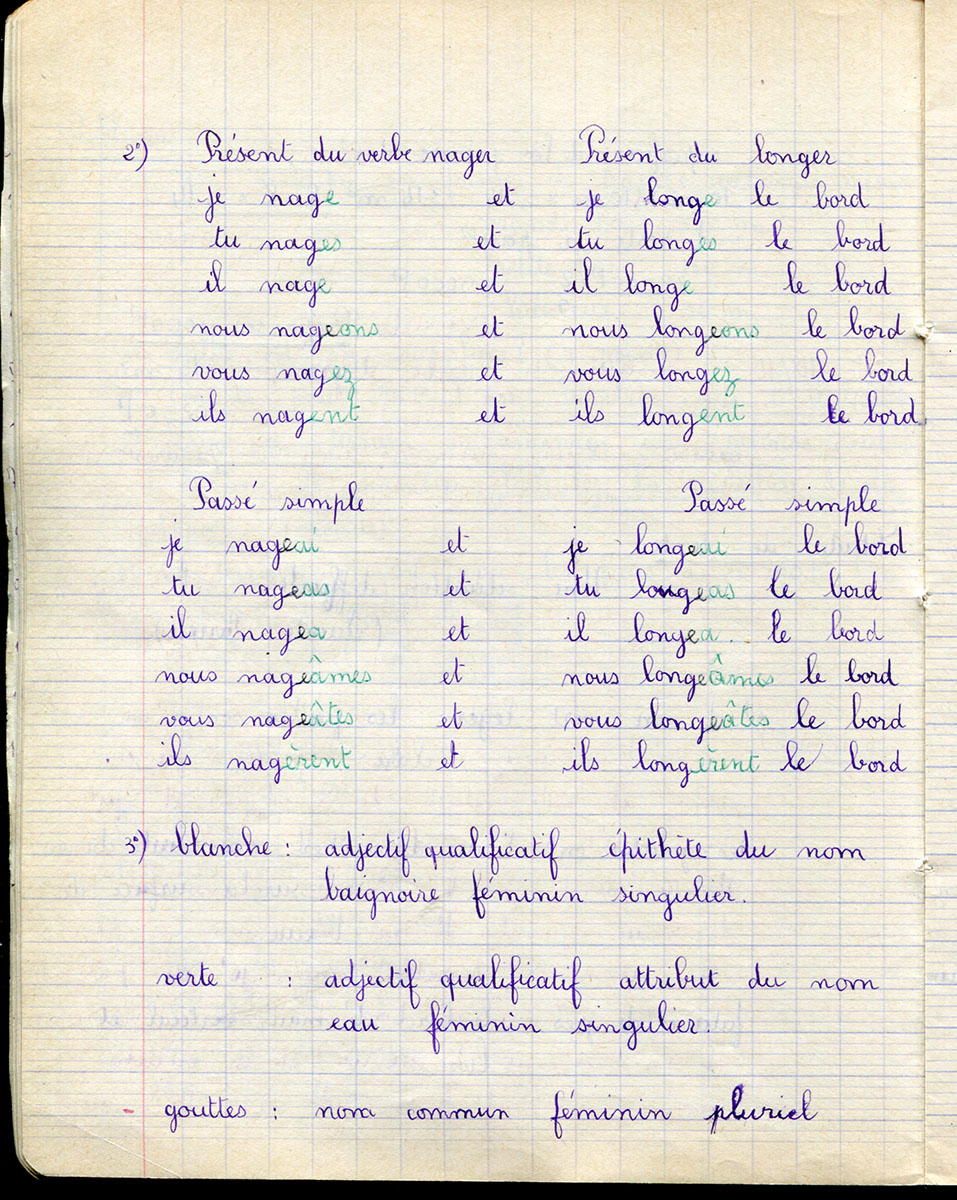 2°) Présent du verbe nager Présent du longer
je nage et je longe le bord
tu nages et tu longes le bord
il nage et il longe le bord
nous nageons et nous longeons le bord
vous nagez et vous longez le bord
ils nagent et ils longent le bord
Passé simple Passé simple
je nageai et je longeai le bord
tu nageas et tu longeas le bord
il nagea et il longea le bord
nous nageâmes et nous longeâmes le bord
vous nageâtes et vous longeâtes le bord
ils nagèrent et ils longèrent le bord
3°) blanche : adjectif qualificatif épithète du nom
baignoire féminin singulier.
verte : adjectif qualificatif attribut du nom
eau féminin singulier.
- gouttes : nom commun féminin pluriel